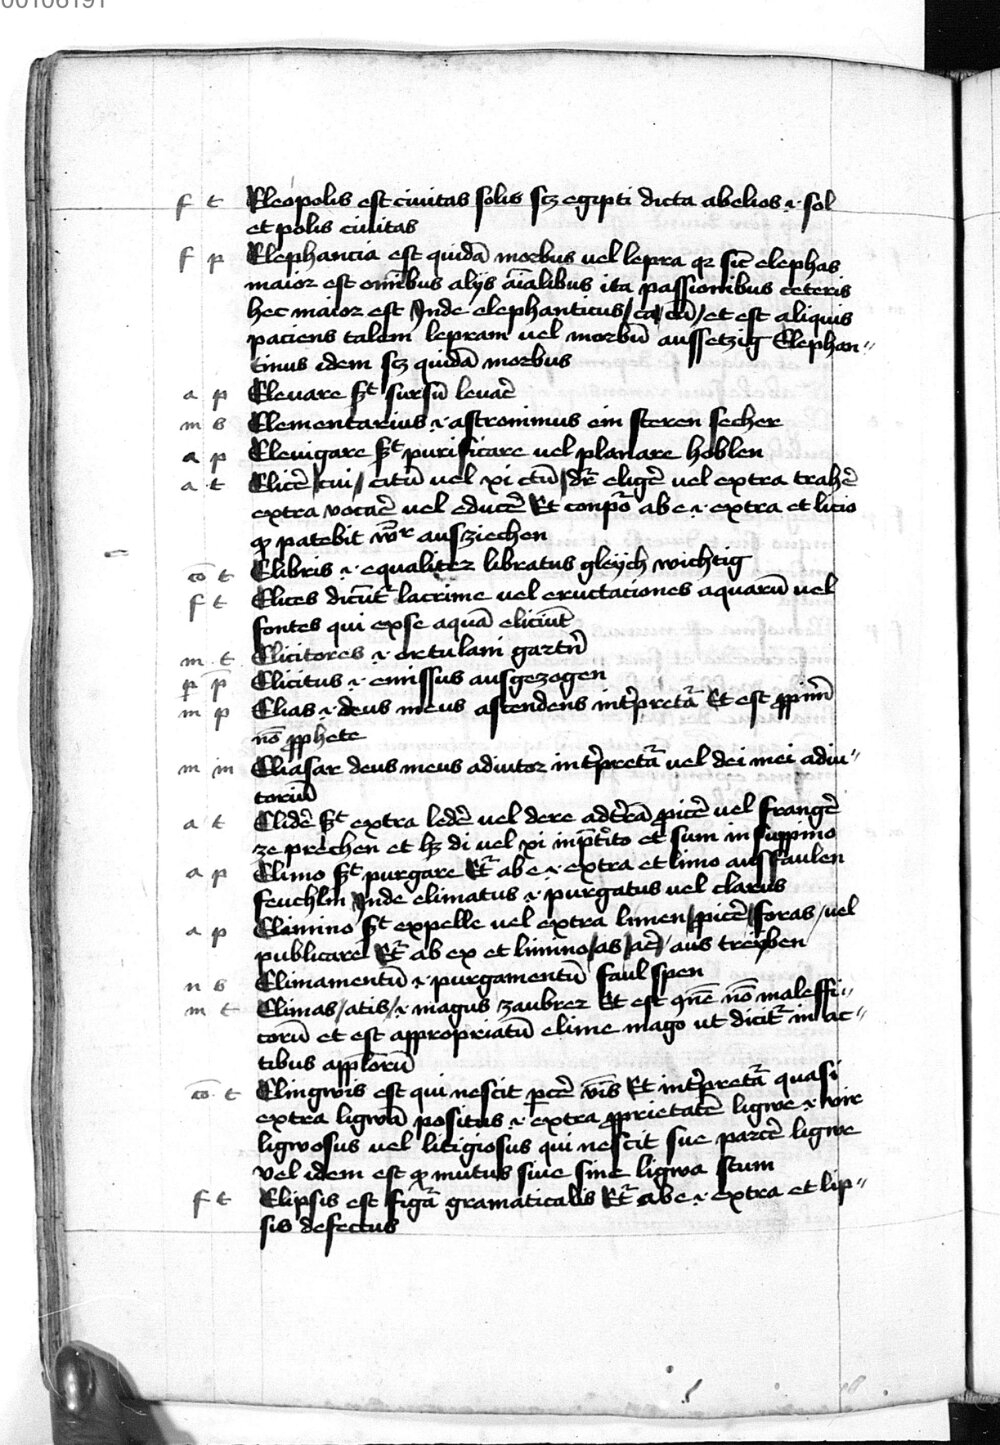 00106191
f t Eleopolis est ciuitas solis sꝫ egipti dicta abelios ·i· sol
et polis ciuitas
f p Elephancia est quidā morbus uel lepra qꝛ sic̄ elephas
maior est om̄ibus alijs aīalibus ita passionibus ceteris
hec maior est Inde elephanticus/ca/cū/et est aliquis
paciens talem lepram uel morbū aussetzig Elephan〃
tinus idem sꝫ quidā morbus
a p Eleuare sͭ sursū leuar̄e
m s Elementarius ·i· astronimus ein steren secher
a p Eleuigare sͭ purificare uel planare hoblen
a t Elicer̄e/cui/citū uel xi ctū/dr̄ eliger̄e uel extra traher̄e
extra vocar̄e uel educer̄e Et conpoͬ ab e ·i· extra et licio
ꝙ patebit ausziechen
co t Elibris ·i· equaliter libratus gleÿch wichtig
f t Elices dicūtͬ lacrime uel eructaciones aquarū uel
fontes qui exse aquā eliciūt
m t Elicitores ·i· ortulani gartn̄
p p Elicitus ·i· emissus ausgezogen
m p Elias ·i· deus meus ascendens int̄pretaͬ Et est ꝓpriū
no ꝓphete
m m Eliasar deus meus adiutor int̄pretaͬ uel dei mei adiu〃
toriū
a t Elider̄e sͭ extra leder̄e uel dere adterrā ꝓicer̄e uel franger̄e
ze prechen et hꝫ di uel xi inp̄tito et sum in suppino
a p Elimo sͭ purgare Etͬ ab e ·i· extra et limo ausfaulen
feuchlin Inde elimatus ·i· purgatus uel clarus
a p Elimino sͭ expelle uel extra limen/ꝓicer̄e/foras/uel
publicare Etͬ ab ex et limino/as/ar̄e/aus treÿben
n s Elimamentū ·i· purgamentū faul spen
m t Elimas/atis/·i· magus zaubrer Et est nō maleffi〃
corū et est appropriatū elime mago ut dicitͬ in ac〃
tibus app̄lorū
co t Elingwis est qui nescit Et int̄pretaͬ quasi
extra ligwā positus ·i· extra ꝓprietatē ligwe ·i·
ligwosus uel litigiosus qui nescit sue parcer̄e ligwe
vel idem est ꝙ mutus siue sine ligwa
f t Elipsis est figā gramaticalis Etͬ ab e ·i· extra et lip〃
sis defectus